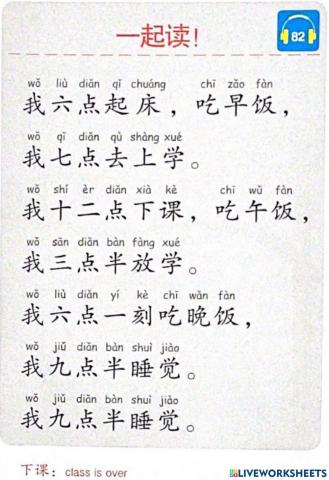 一起读!
82
wǒ liù diǎn qǐ chuáng chī zǎo fàn
我六点起床，吃早饭，
wǒ qī diǎn qù shàng xué
我七点去上学。
wǒ shí èr diǎn xià kè chī wǔ fàn
我十二点下课，吃午饭，
wǒ sān diǎn bàn fàng xué
我三点半放学。
wǒ liù diǎn yí kè chī wǎn fàn
我六点一刻吃晚饭，
wǒ jiǔ diǎn bàn shuì jiào
我九点半睡觉。
wǒ jiǔ diǎn bàn shuì jiào
我九点半睡觉。
下课：class is over
LIVEWORKSHEETS